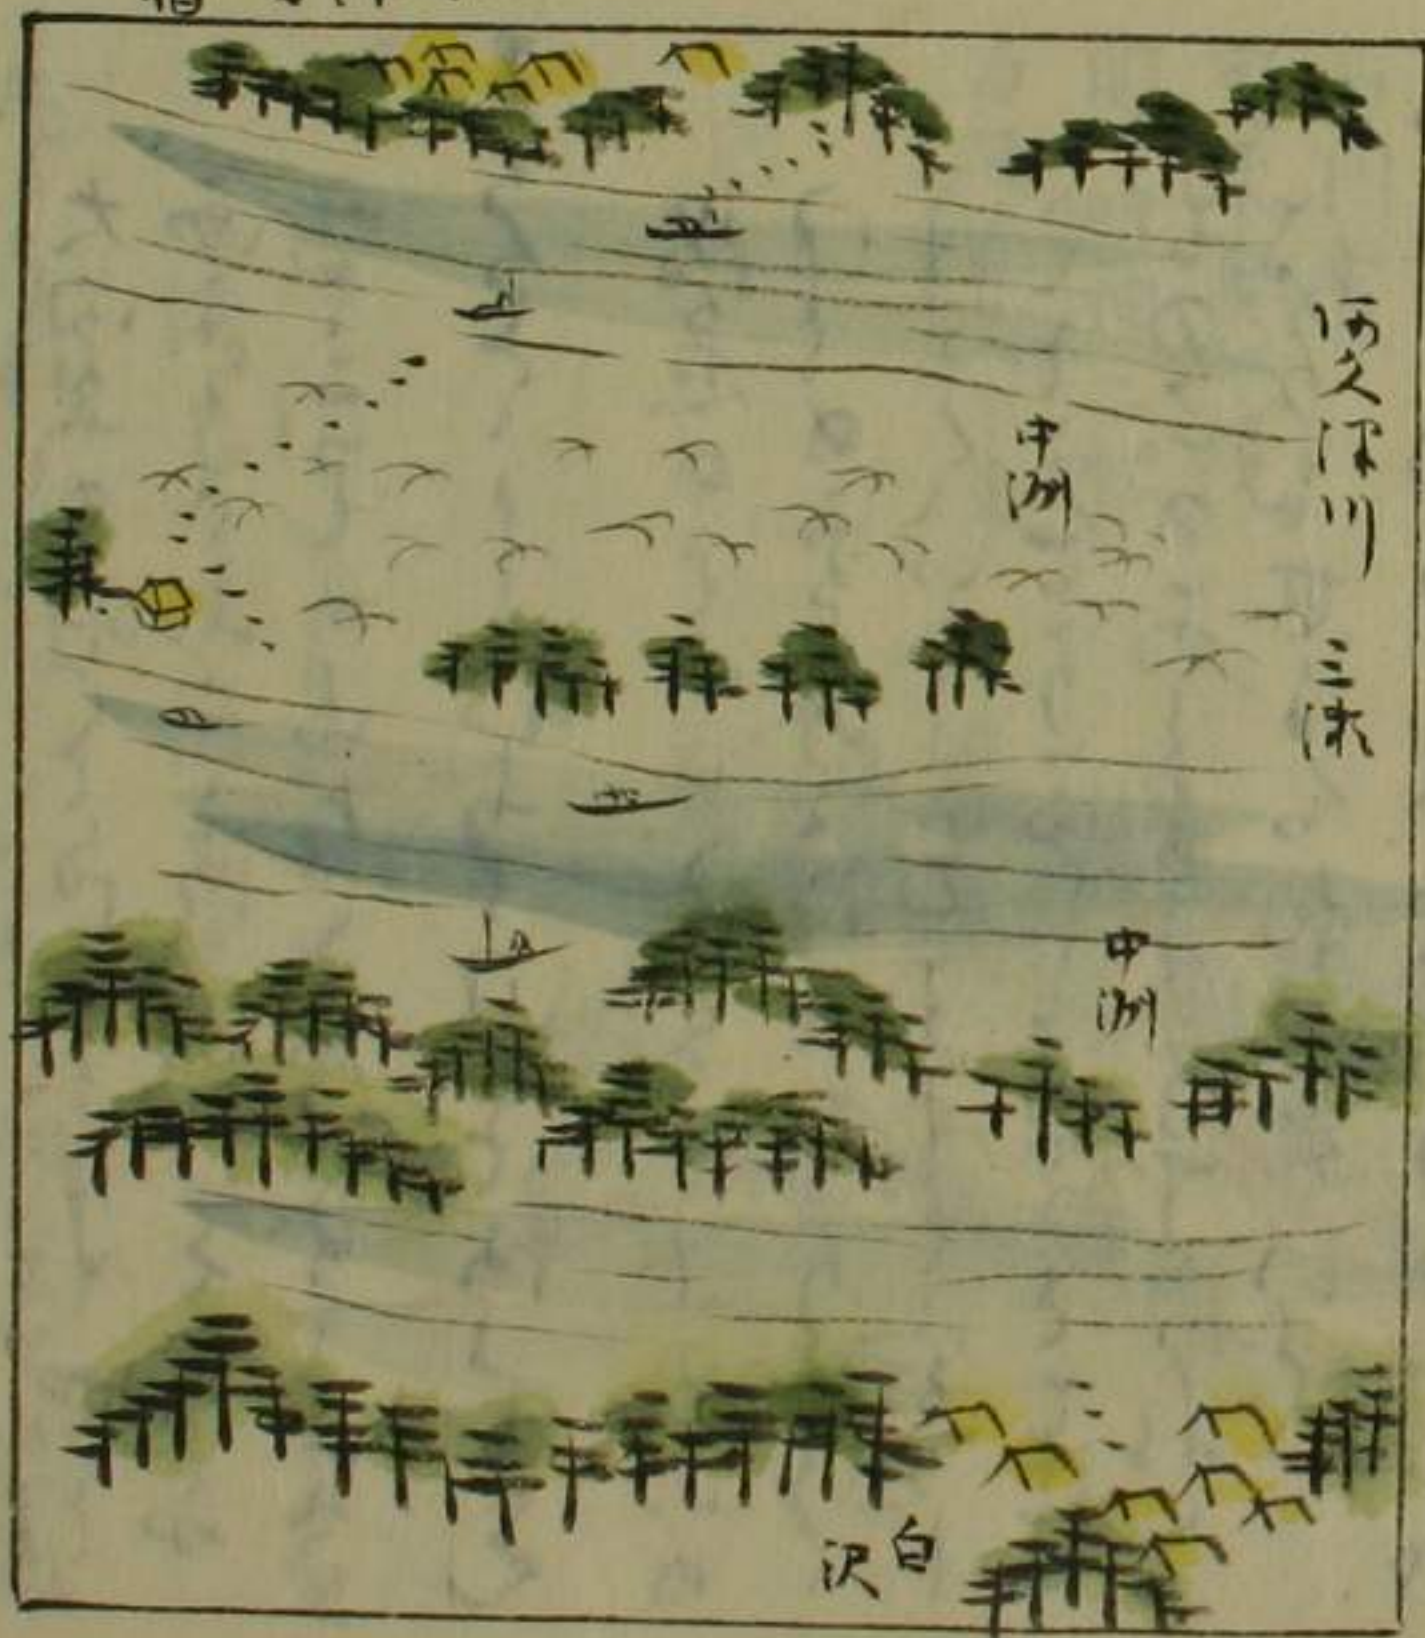 阿久津川
三瀬
中洲
中洲
白
沢